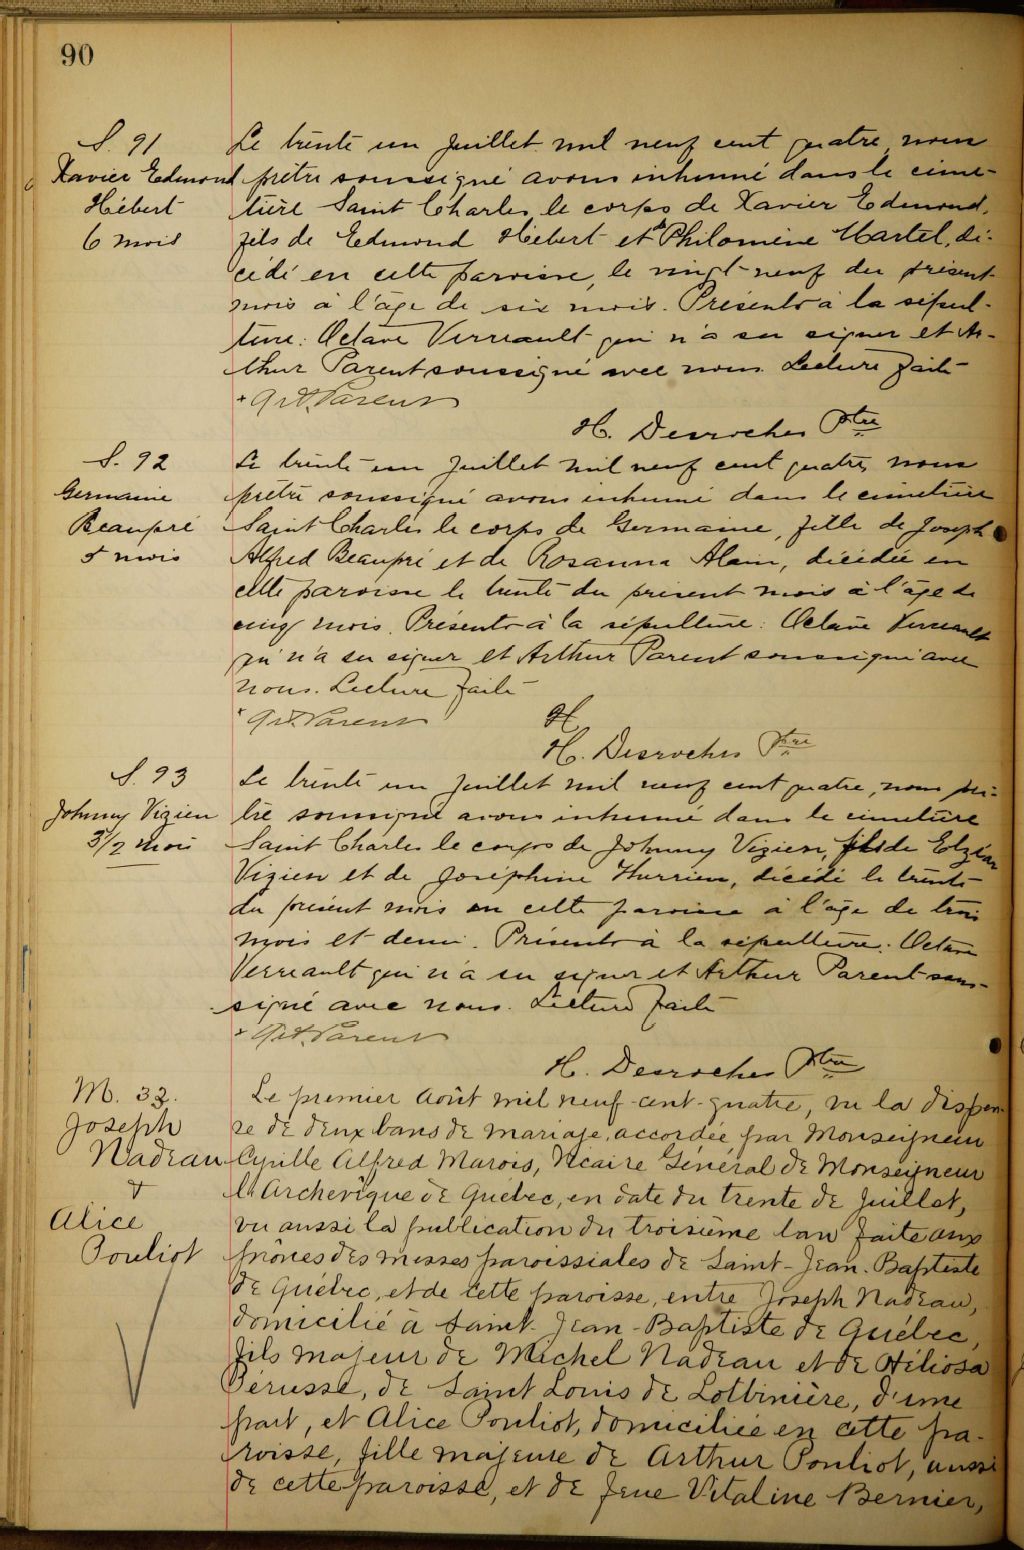 90
S. 91
Xavier Edmond
Hébert
6 mois
Le trente un Juillet mil neuf cent quatre, nous
prêtre soussigné avons inhumé dans le cime-
tière Saint Charles, le corps de Xavier Edmond,
fils de Edmond Hébert et de Philomène Martel, dé-
cédé en cette paroisse, le vingt-neuf du présent
mois à l'âge de six mois. Présents à la sépul-
ture: Octave Verreault qui n'a su signer et Ar-
thur Parent soussigné avec nous. Lecture faite
+ Art. Parent
H. Desroches Ptre
S. 92
Germaine
Beaupré
5 mois
Le trente-un Juillet mil neuf cent quatre, nous
prêtre soussigné avons inhumé dans le cimetière
Saint Charles le corps de Germaine, fille de Joseph
Alfred Beaupré et de Rosanna Alain, décédée en
cette paroisse le trente du présent mois à l'âge de
cinq mois. Présents à la sépulture: Octave Verreault
qui n'a su signer et Arthur Parent soussigné avec
nous. Lecture faite
+ Art. Parent
H
H. Desroches Ptre
S. 93
Johnny Vizien
3 1/2 mois
Le trente un Juillet mil neuf cent quatre, nous prê-
tre soussigné avons inhumé dans le cimetière
Saint Charles le corps de Johnny Vizien, fils de Elzéar
Vizien et de Joséphine Hurrien, décédé le trente
du présent mois en cette paroisse à l'âge de trois
mois et demi. Présents à la sépulture: Octave
Verreault qui n'a su signer et Arthur Parent sous-
signé avec nous. Lecture faite
+ Art. Parent
H. Desroches Ptre
M. 33.
Joseph
Nadeau
&
Alice
Pouliot
Le premier Août mil neuf-cent-quatre, vu la dispen-
se de deux bans de mariage, accordée par Monseigneur
Cyrille Alfred Marois, Vicaire Général de Monseigneur
l'Archevêque de Québec, en date du trente de Juillet,
vu aussi la publication du troisième ban faite aux
prônes des messes paroissiales de Saint-Jean-Baptiste
de Québec, et de cette paroisse, entre Joseph Nadeau,
domicilié à Saint-Jean-Baptiste de Québec,
fils majeur de Michel Nadeau et de Héliosa
Bérusse, de Saint Louis de Lotbinière, d'une
part, et Alice Pouliot, domiciliée en cette pa-
roisse, fille majeure de Arthur Pouliot, aussi
de cette paroisse, et de feue Vitaline Bernier,